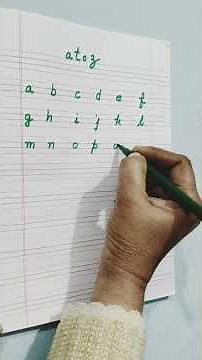 a to z
a b c d e f
g h i j k l
m n o p